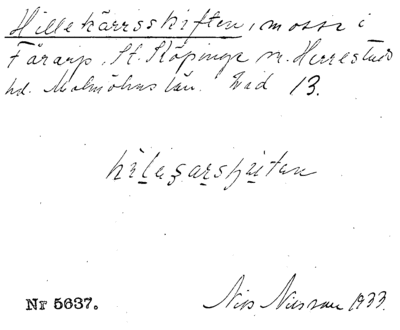 Hillekärrsskiften, mosse i
Fårarp, St. Köpinge sn. Herrestads
hd. Malmöhus län. Bad 13.
Nr 5637.
Nils Nilsson 1933.